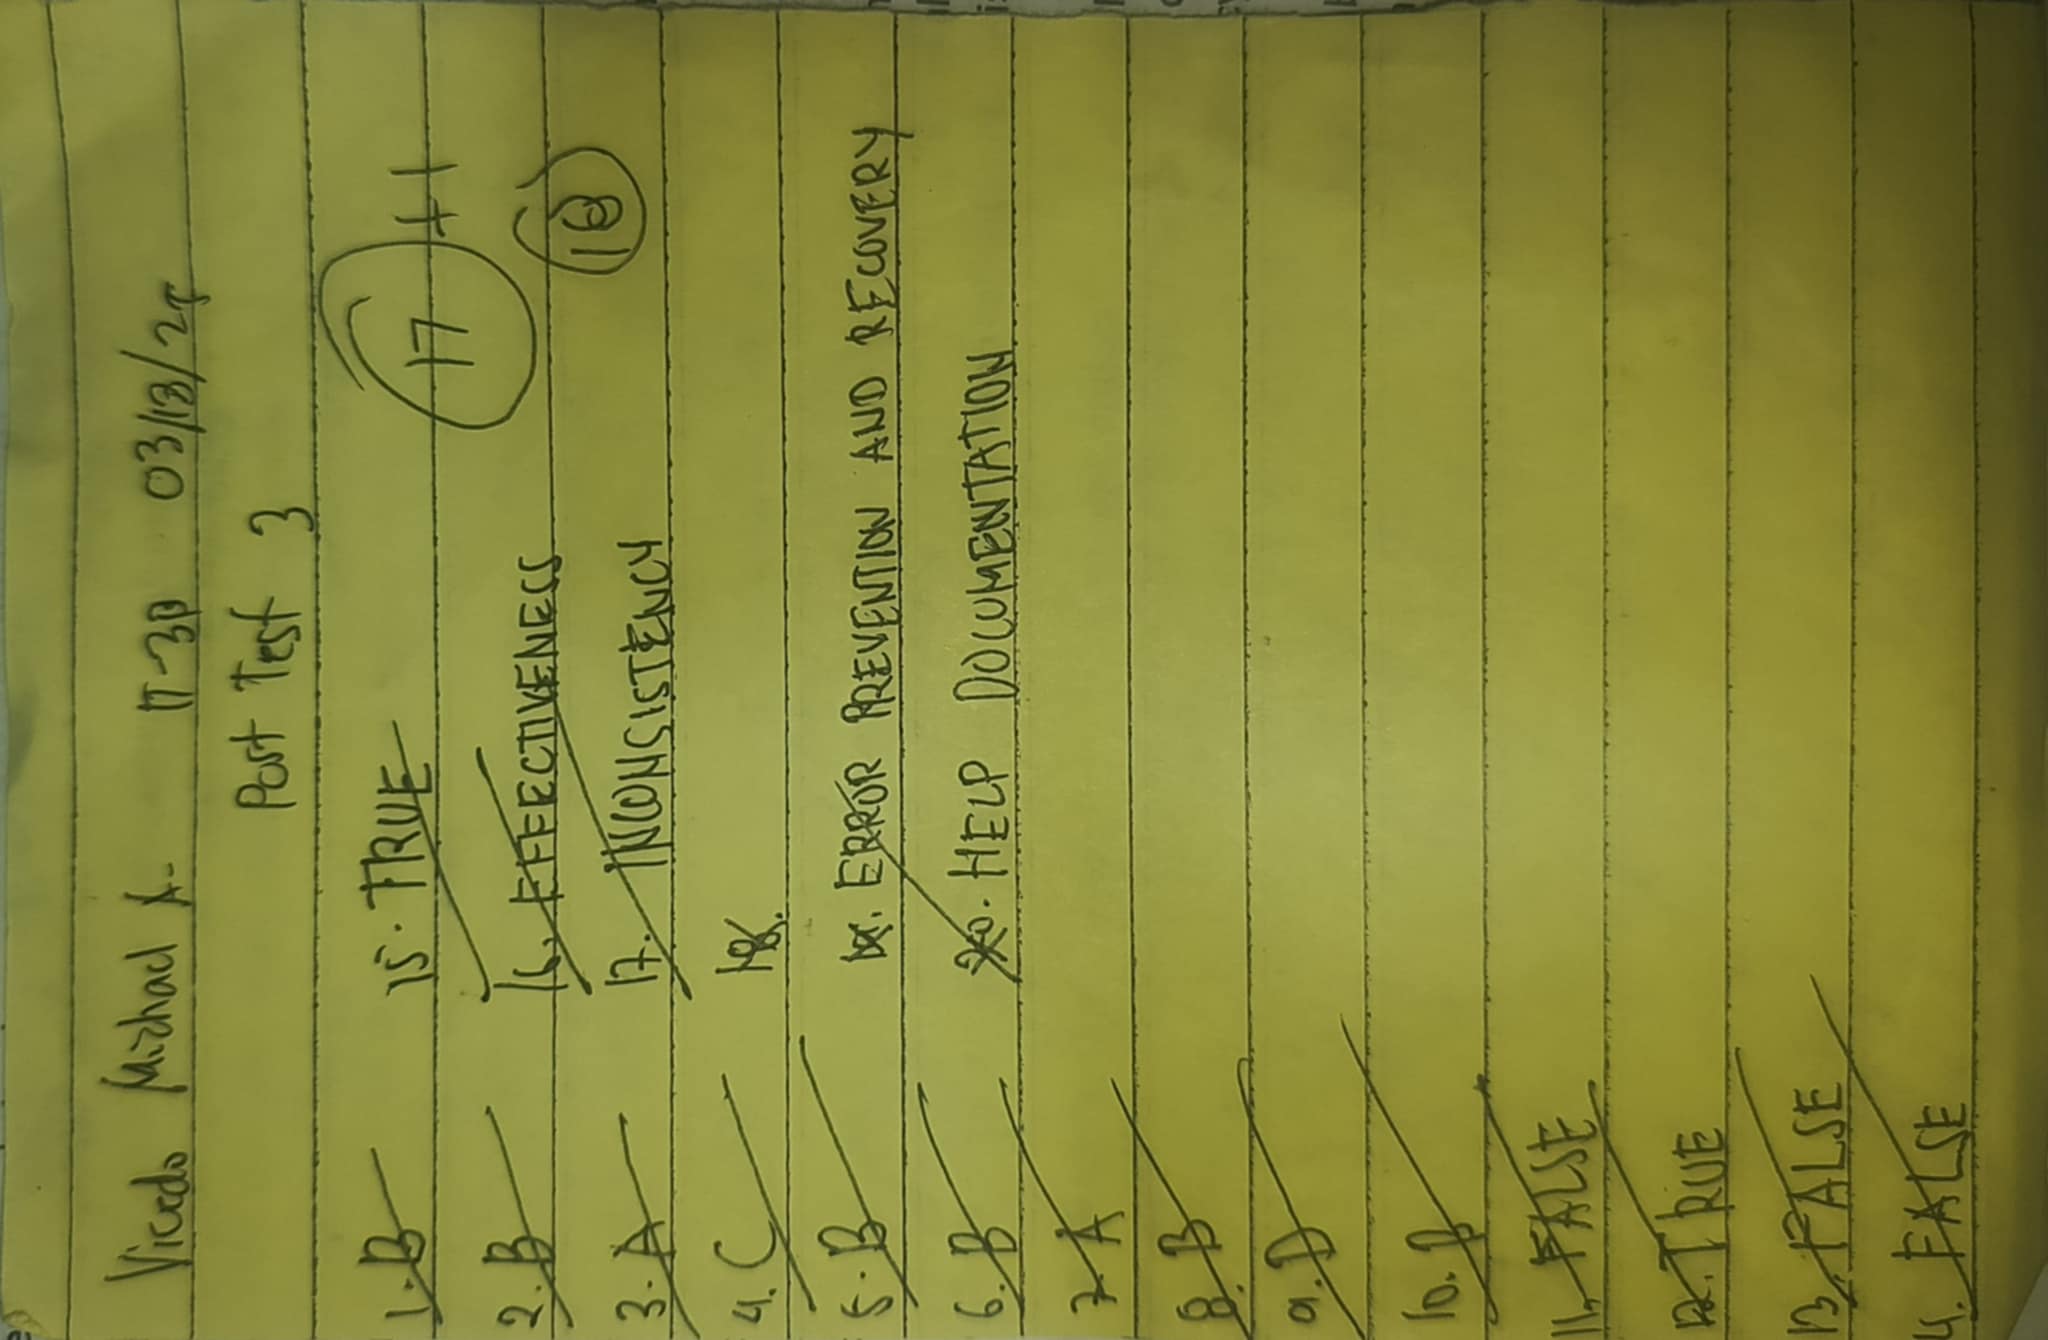 Vicedo Michael A. IT-3D 03/18/25
Post Test 3
17 +1
18
1. B
2. B
3. A
4. C
5. B
6. B
7. A
8. B
9. D
10. B
11. FALSE
12. TRUE
13. FALSE
14. FALSE
15. TRUE
16. EFFECTIVENESS
17. INCONSISTENCY
18.
19. ERROR PREVENTION AND RECOVERY
20. HELP DOCUMENTATION